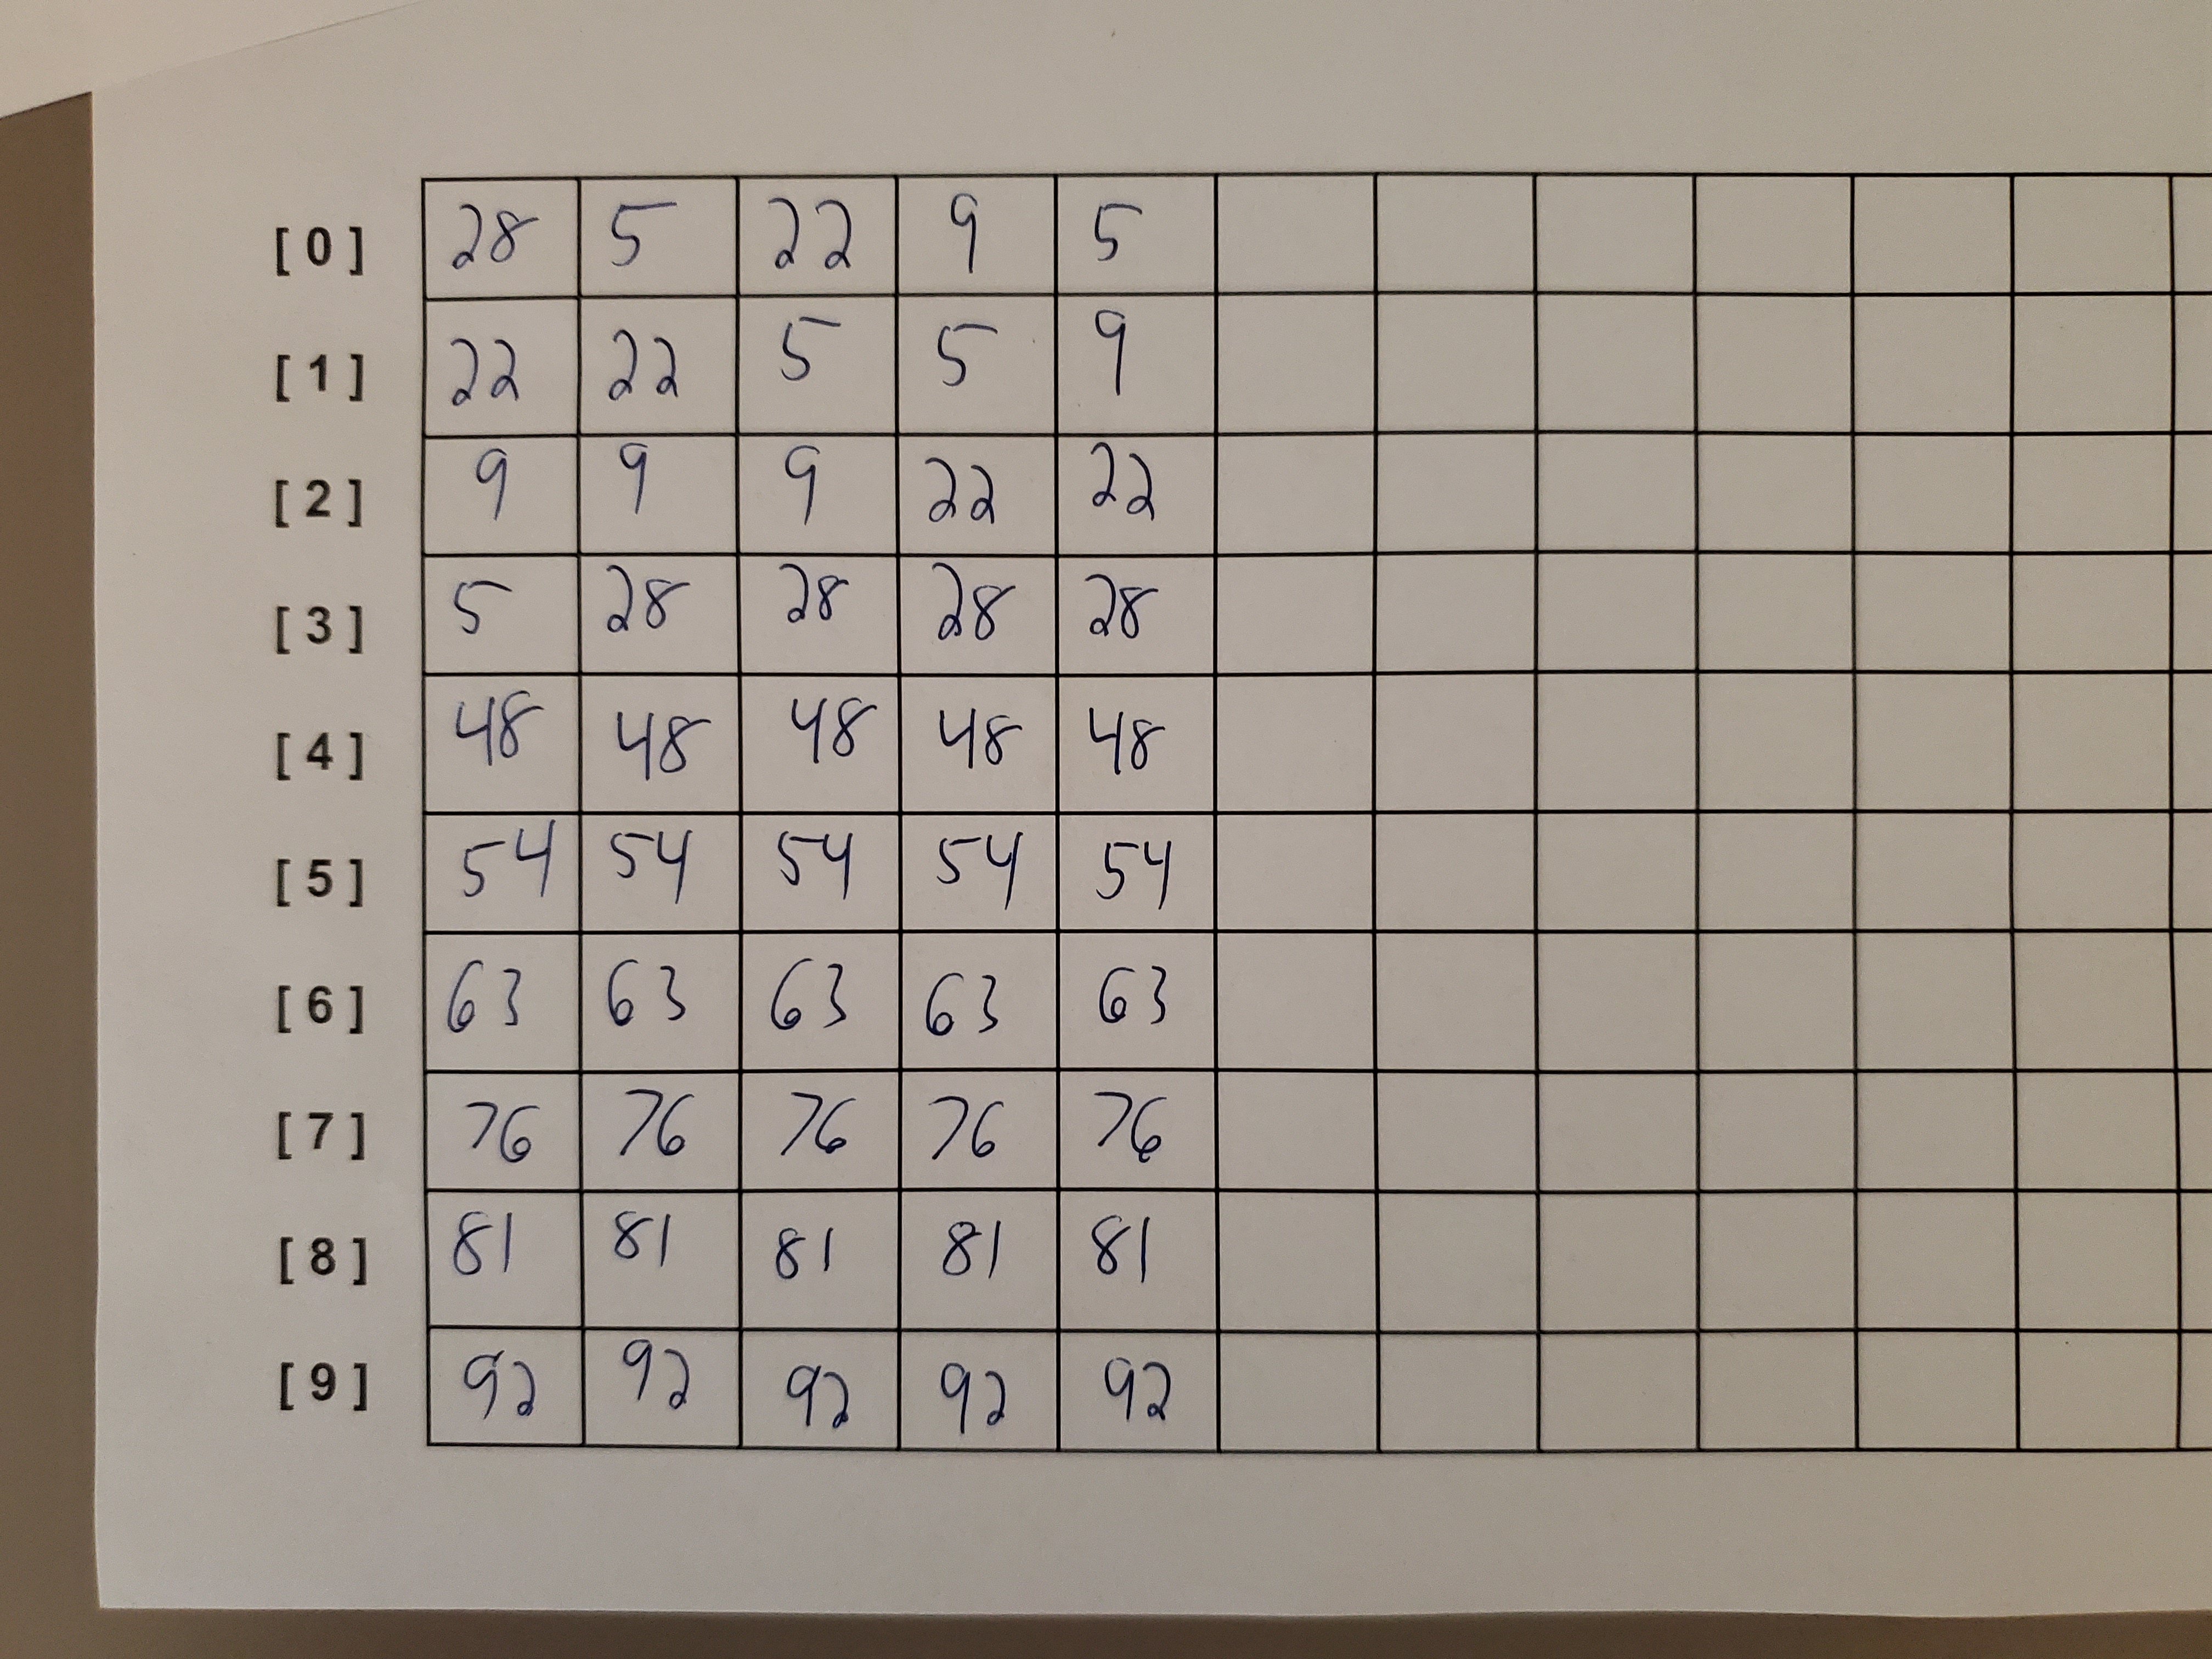 [0] 28 5 22 9 5
[1] 22 22 5 5 9
[2] 9 9 9 22 22
[3] 5 28 28 28 28
[4] 48 48 48 48 48
[5] 54 54 54 54 54
[6] 63 63 63 63 63
[7] 76 76 76 76 76
[8] 81 81 81 81 81
[9] 92 92 92 92 92